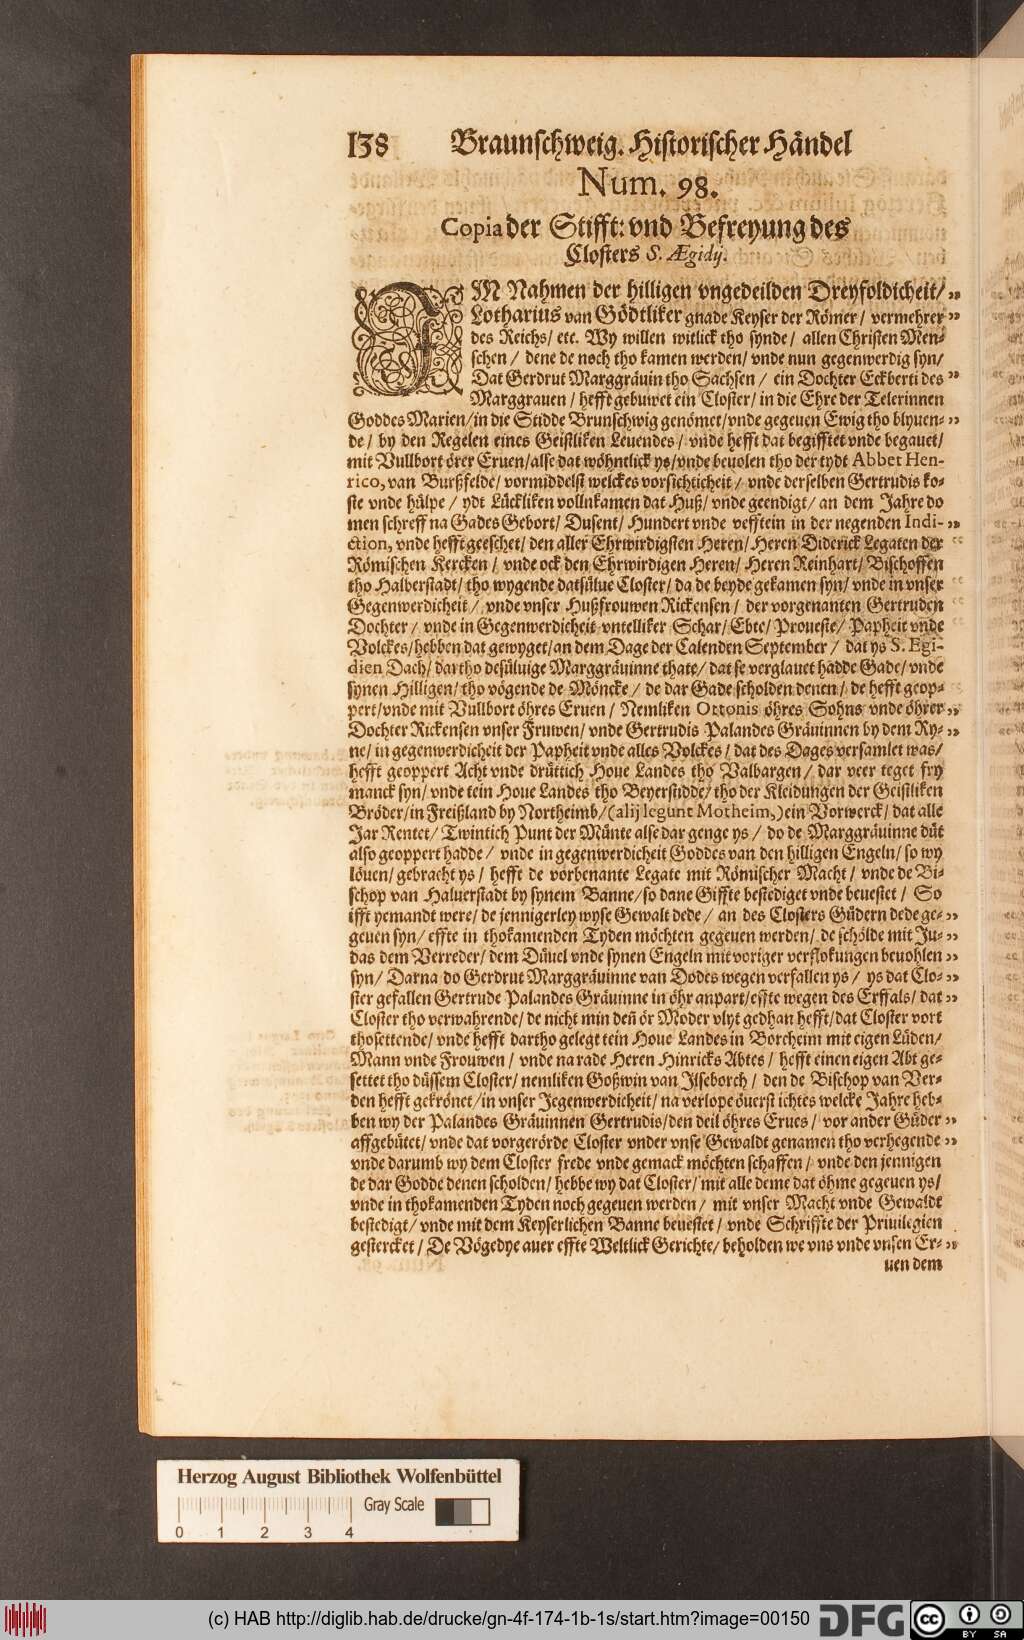 138 Braunschweig. Historischer Händel
Num. 98.
Copia der Stifft: vnd Befreyung des
Closters S. Ægidij.
IM Nahmen der hilligen vngedeilden Dreyfoldicheit/ „
Lotharius van Gödtliker gnade Keyser der Römer/ vermehrer „
des Reichs/ etc. Wy willen witlick tho synde/ allen Christen Men-
schen/ dene de noch tho kamen werden/ vnde nun gegenwerdig syn/
Dat Gerdrut Marggräuin tho Sachsen/ ein Dochter Eckberti des „
Marggrauen/ hefft gebuwet ein Closter/ in die Ehre der Telerinnen
Goddes Marien/ in die Stidde Brunschwig genömet/ vnde gegeuen Ewig tho blyuen- „
de/ by den Regelen eines Geistliken Leuendes/ vnde hefft dat begifftet vnde begauet/
mit Vullbort örer Eruen/ alse dat wöhntlick ys/ vnde beuolen tho der tydt Abbet Hen-
rico, van Burßfelde/ vormiddelst welckes vorsichticheit/ vnde derselben Gertrudis ko-
ste vnde hülpe/ ydt Lückliken vollnkamen dat Huß/ vnde geendigt/ an dem Jahre do
men schreff na Gades Gebort/ Dusent/ Hundert vnde vefftein in der negenden Indi- „
ction, vnde hefft geeschet/ den aller Ehrwirdigsten Heren/ Heren Diderick Legaten der
Römischen Kercken/ vnde ock den Ehrwirdigen Heren/ Heren Reinhart/ Bischoffen
tho Halberstadt/ tho wygende datsülue Closter/ da de beyde gekamen syn/ vnde in vnser
Gegenwerdicheit/ vnde vnser Hußfrouwen Rickensen/ der vorgenanten Gertruden
Dochter/ vnde in Gegenwerdicheit vntelliker Schar/ Ebte/ Proueste/ Papheit vnde
Volckes/ hebben dat gewyget/ an dem Dage der Calenden September/ dat ys S. Egi-
dien Dach/ dartho desüluige Marggräuinne thate/ dat se verglauet hadde Gade/ vnde
synen Hilligen/ tho vögende de Möncke/ de dar Gade scholden denen/ de hefft geop-
pert/ vnde mit Vullbort öhres Eruen/ Nemliken Ottonis öhres Sohns vnde öhrer „
Dochter Rickensen vnser Fruwen/ vnde Gertrudis Palandes Gräuinnen by dem Ry- „
ne/ in gegenwerdicheit der Papheit vnde alles Volckes/ dat des Dages versamlet was/
hefft geoppert Acht vnde drüttich Houe Landes tho Valbargen/ dar veer teget fry
manck syn/ vnde tein Houe Landes tho Beyerstidde/ tho der Kleidungen der Geistliken
Bröder/ in Freißland by Northeimb/ (alij legunt Motheim,) ein Vorwerck/ dat alle
Jar Rentet/ Twintich Punt der Münte alse dar genge ys/ do de Marggräuinne düt
also geoppert hadde/ vnde in gegenwerdicheit Goddes van den hilligen Engeln/ so wy
löuen/ gebracht ys/ hefft de vorbenante Legate mit Römischer Macht/ vnde de Bi-
schop van Haluerstadt by synem Banne/ so dane Giffte bestediget vnde beuestet/ So
ifft yemandt were/ de jennigerley wyse Gewalt dede/ an des Closters Güdern dede ge- „
geuen syn/ effte in thokamenden Tyden möchten gegeuen werden/ de schölde mit Ju- „
das dem Verreder/ dem Düuel vnde synen Engeln mit voriger verflokungen beuohlen „
syn/ Darna do Gerdrut Marggräuinne van Dodes wegen verfallen ys/ ys dat Clo- „
ster gefallen Gertrude Palandes Gräuinne in öhr anpart/ effte wegen des Erffals/ dat „
Closter tho verwahrende/ de nicht min deñ ör Moder vlyt gedhan hefft/ dat Closter vort
thosettende/ vnde hefft dartho gelegt tein Houe Landes in Borcheim mit eigen Lüden/
Mann vnde Frouwen/ vnde na rade Heren Hinricks Abtes/ hefft einen eigen Abt ge-
settet tho düssem Closter/ nemliken Goßwin van Ilseborch/ den de Bischop van Ver-
den hefft gekrönet/ in vnser Jegenwerdicheit/ na verlope öuerst ichtes welcke Jahre heb-
ben wy der Palandes Gräuinnen Gertrudis/ den deil öhres Erues/ vor ander Güder „
affgebütet/ vnde dat vorgerörde Closter vnder vnse Gewaldt genamen tho verhegende „
vnde darumb wy dem Closter frede vnde gemack möchten schaffen/ vnde den jennigen
de dar Godde denen scholden/ hebbe wy dat Closter/ mit alle deme dat öhme gegeuen ys/
vnde in thokamenden Tyden noch gegeuen werden/ mit vnser Macht vnde Gewaldt
bestedigt/ vnde mit dem Keyserlichen Banne beuestet/ vnde Schriffte der Priuilegien
gestercket/ De Vögedye auer effte Weltlick Gerichte/ beholden we vns vnde vnsen Er- „
uen dem
Herzog August Bibliothek Wolfenbüttel
Gray Scale
0 1 2 3 4
(c) HAB http://diglib.hab.de/drucke/gn-4f-174-1b-1s/start.htm?image=00150 DFG cc BY SA